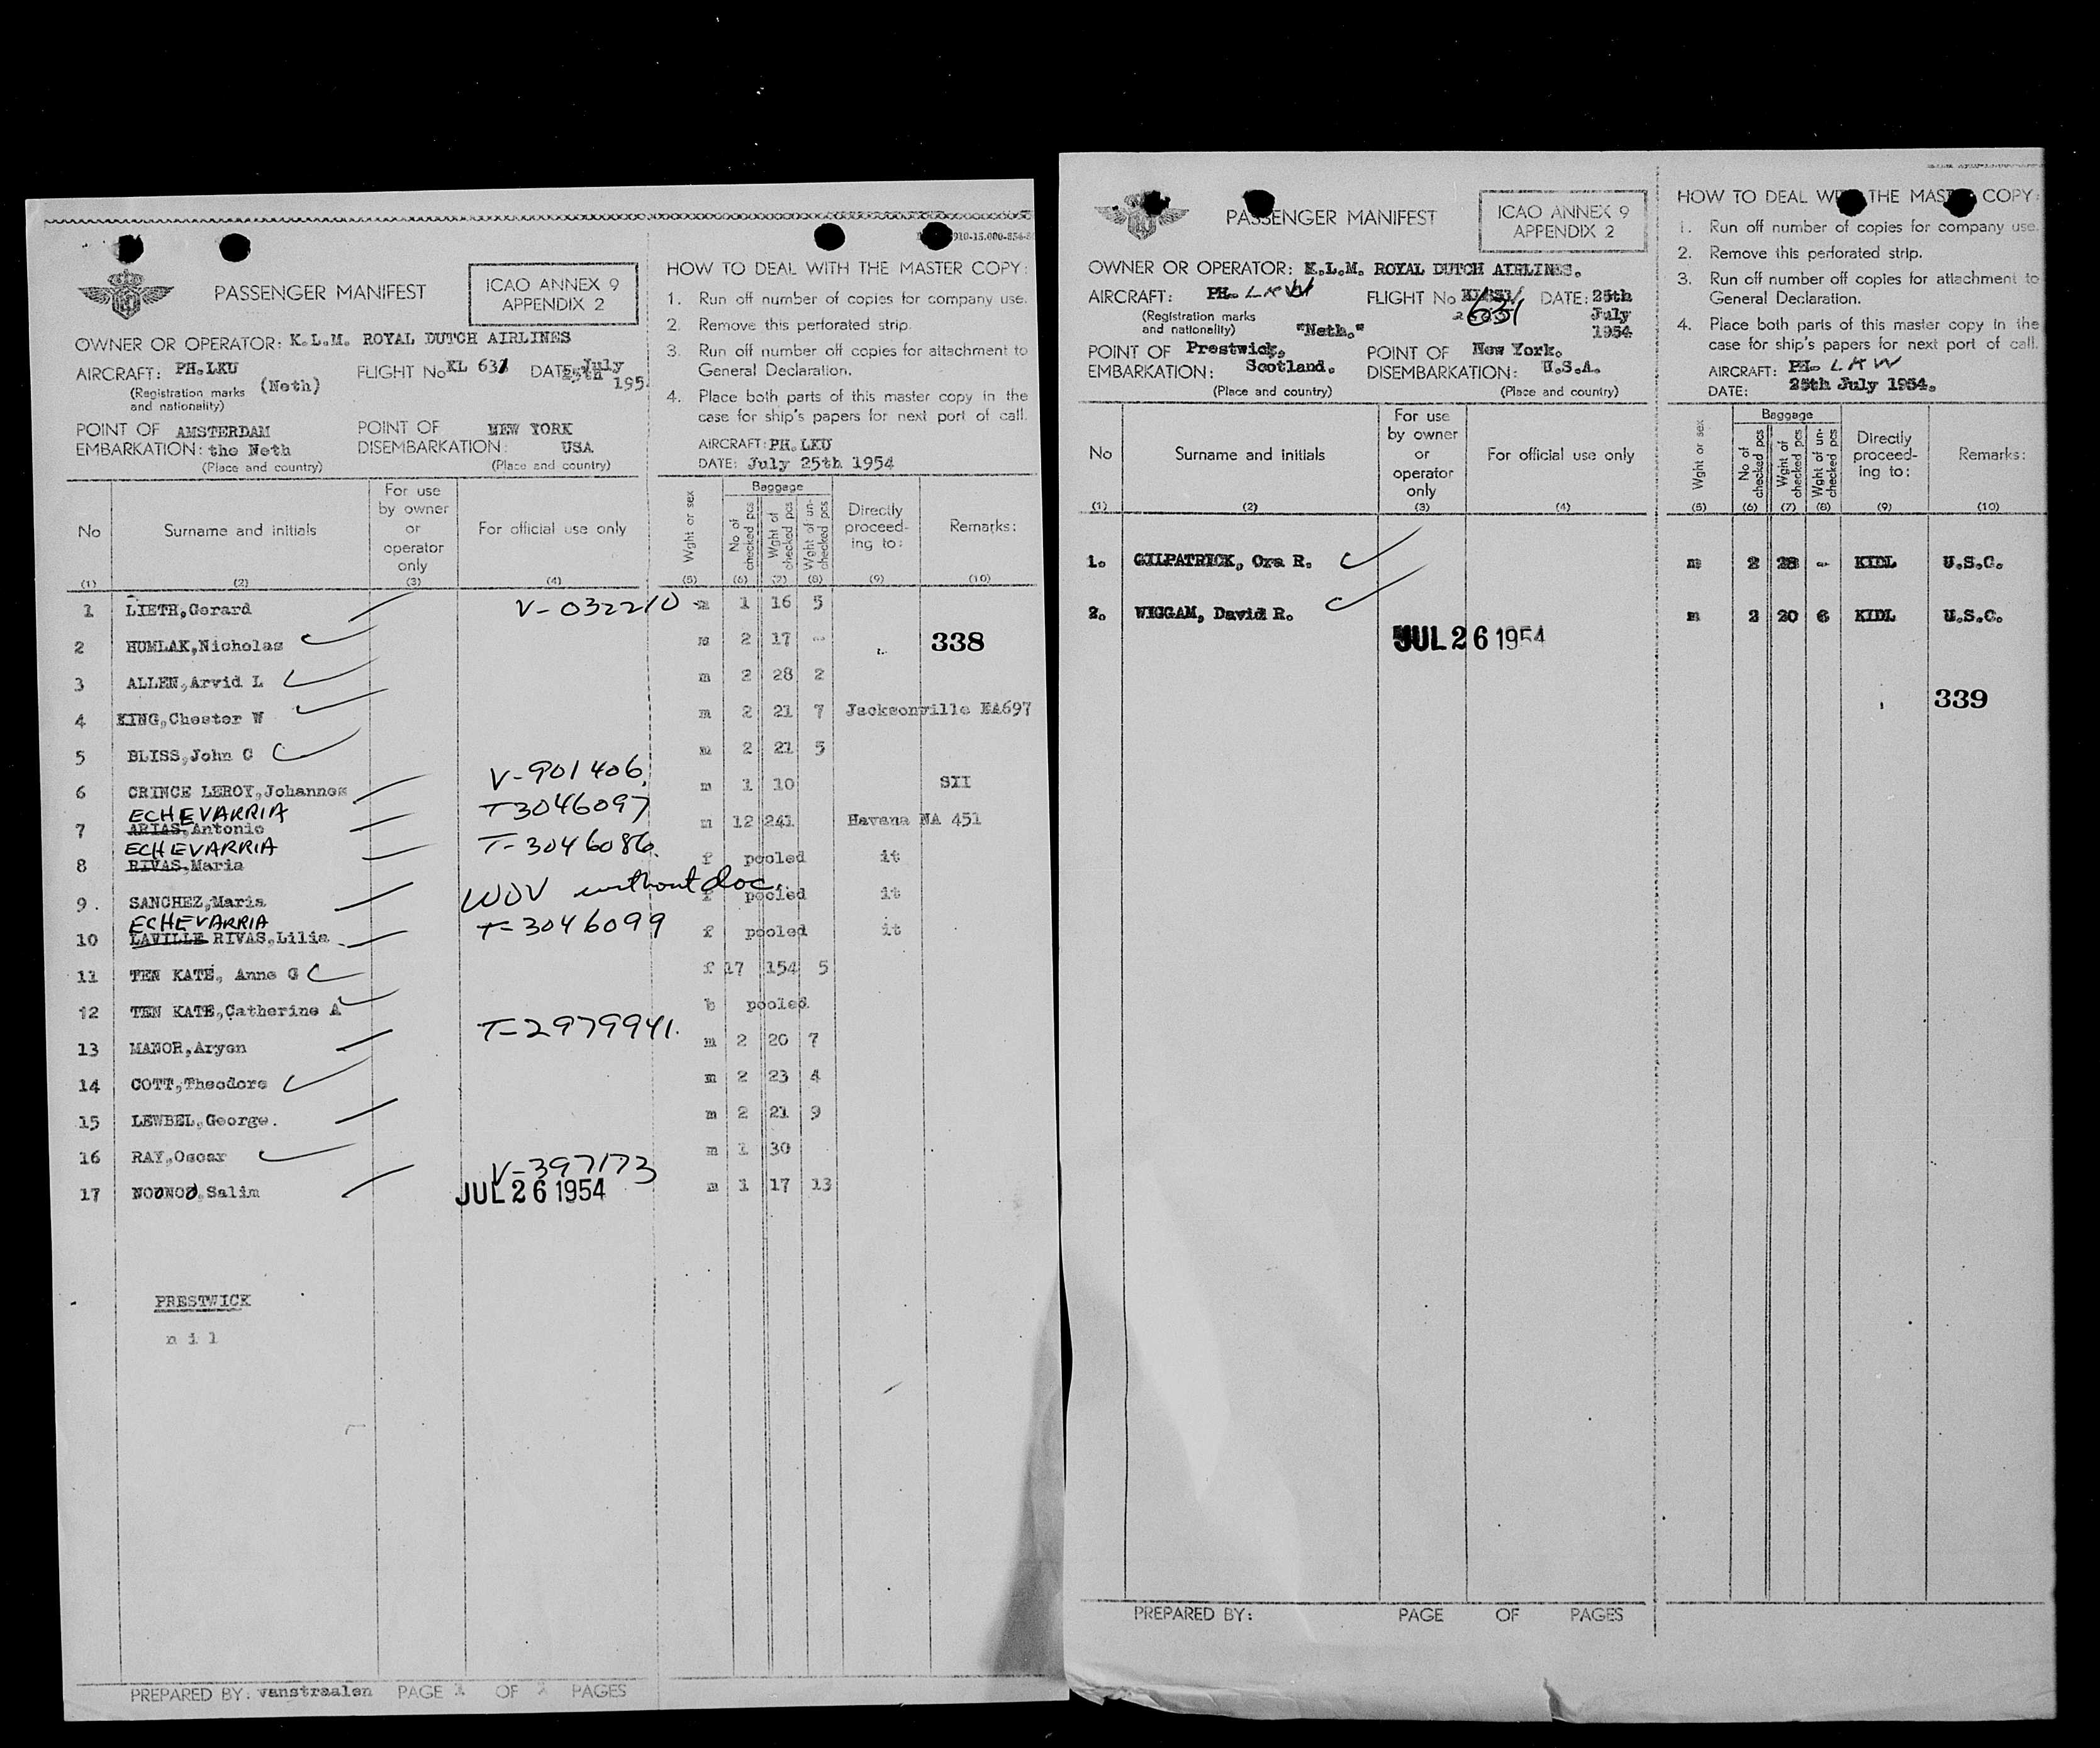 PASSENGER MANIFEST
ICAO ANNEX 9
APPENDIX 2
OWNER OR OPERATOR: K.L.M. ROYAL DUTCH AIRLINES
AIRCRAFT: PH.LKU (Neth) FLIGHT No KL 631 DATE: July 25th 195
(Registration marks
and nationality)
POINT OF EMBARKATION: AMSTERDAM the Neth
POINT OF DISEMBARKATION: NEW YORK USA
(Place and country) (Place and country)
HOW TO DEAL WITH THE MASTER COPY:
1. Run off number of copies for company use.
2. Remove this perforated strip.
3. Run off number off copies for attachment to
General Declaration.
4. Place both parts of this master copy in the
case for ship's papers for next port of call.
AIRCRAFT: PH.LKU
DATE: July 25th 1954
No Surname and initials For use by owner or operator only For official use only Wght or sex Baggage No of checked pcs Wght of checked pcs Wght of un-checked pcs Directly proceed-ing to: Remarks:
(1) (2) (3) (4) (5) (6) (7) (8) (9) (10)
1 LIETH,Gerard V-032210 m 1 16 5
2 HUMLAK,Nicholas m 2 17 -- 338
3 ALLEN,Arvid L m 2 28 2
4 KING,Chester W m 2 21 7 Jacksonville EA697
5 BLISS,John C m 2 21 5
6 CRINCE LEROY,Johannes V-901406 m 1 10 SII
ECHEVARRIA
7 ARIAS,Antonio T3046097 m 12 241 Havana NA 451
ECHEVARRIA
8 RIVAS,Maria T-3046086. f pooled it
9. SANCHEZ,Maria WOV without doc. f pooled it
ECHEVARRIA
10 LAVILLE RIVAS,Lilia T-3046099 f pooled it
11 TEN KATE, Anne G f 17 154 5
12 TEN KATE,Catherine A b pooled
13 MANOR,Aryen T-2979941. m 2 20 7
14 COTT,Theodore m 2 23 4
15 LEWBEL,George. m 2 21 9
16 RAY,Oscar m 1 30
17 NOUNOU,Salim V-397173 m 1 17 13
JUL 26 1954
PRESTWICK
n i l
PREPARED BY: vanstraalen PAGE 1 OF PAGES
PASSENGER MANIFEST
ICAO ANNEX 9
APPENDIX 2
OWNER OR OPERATOR: K.L.M. ROYAL DUTCH AIRLINES.
AIRCRAFT: PH- LKW "Neth." FLIGHT No 631 DATE: 25th July 1954
(Registration marks
and nationality)
POINT OF EMBARKATION: Prestwick, Scotland.
POINT OF DISEMBARKATION: New York. U.S.A.
(Place and country) (Place and country)
HOW TO DEAL WITH THE MASTER COPY:
1. Run off number of copies for company use.
2. Remove this perforated strip.
3. Run off number off copies for attachment to
General Declaration.
4. Place both parts of this master copy in the
case for ship's papers for next port of call.
AIRCRAFT: PH- LKW
DATE: 25th July 1954.
No Surname and initials For use by owner or operator only For official use only Wght or sex Baggage No of checked pcs Wght of checked pcs Wght of un-checked pcs Directly proceed-ing to: Remarks:
(1) (2) (3) (4) (5) (6) (7) (8) (9) (10)
1. GILPATRICK, Ora R. m 2 28 - KIDL U.S.C.
2. WIGGAM, David R. m 2 20 6 KIDL U.S.C.
JUL 26 1954
339
PREPARED BY: PAGE OF PAGES